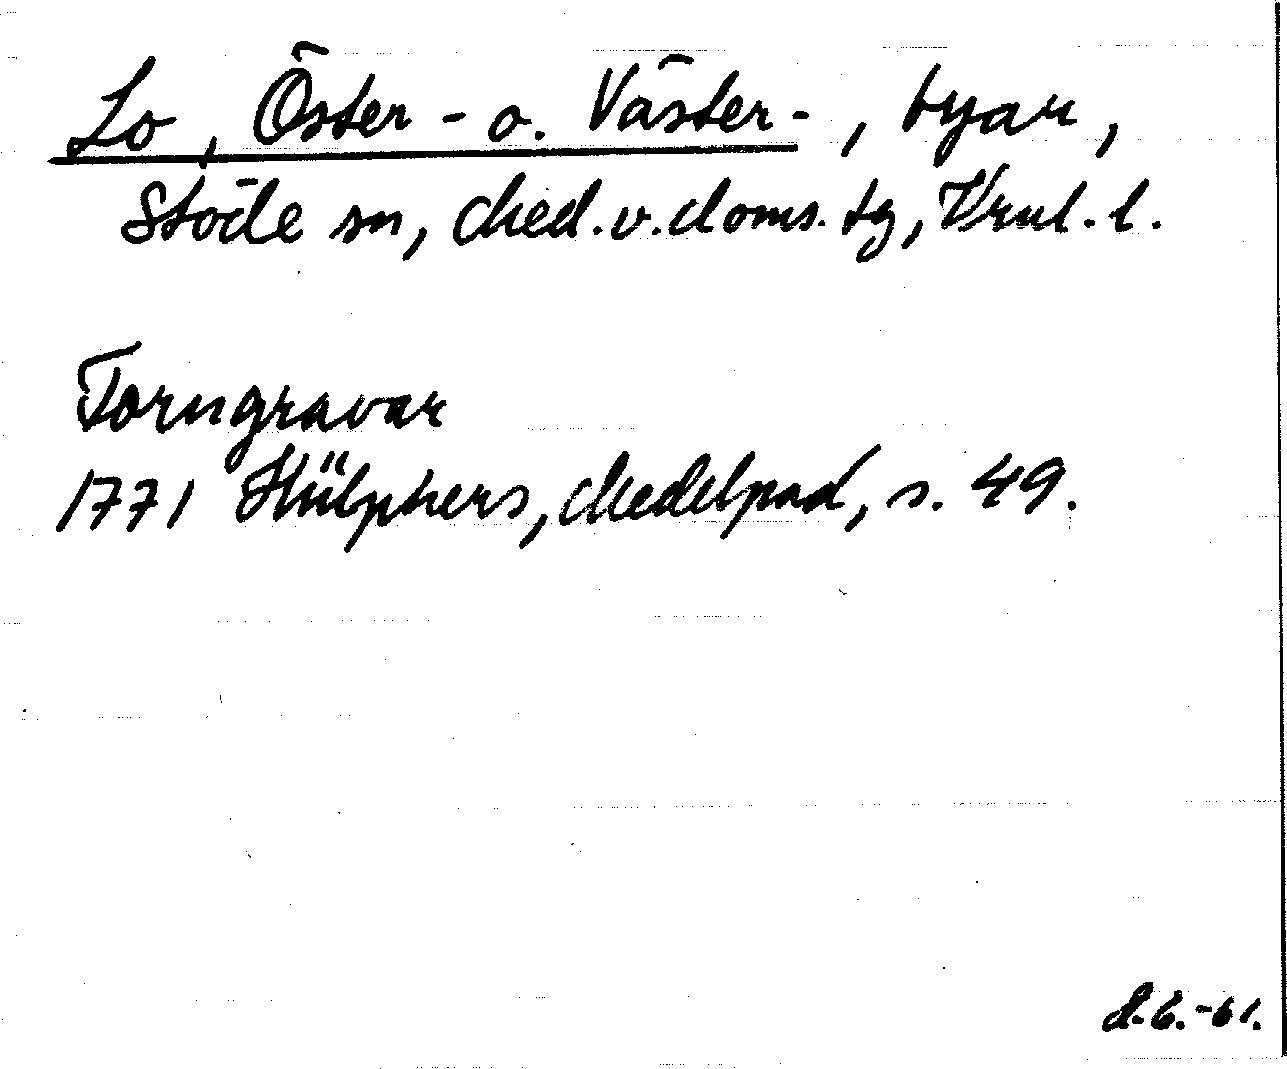 Lo, Öster- o. Väster-, byar,
Stöde sn, Med.v.doms.tg, Vrnl.l.
Forngravar
1771 Hülphers, Medelpad, s. 49.